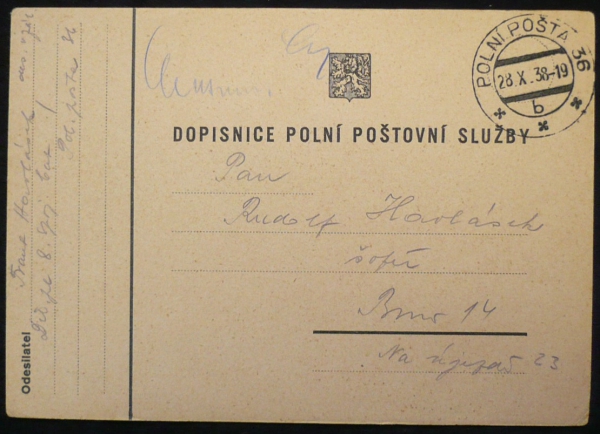 POLNÍ POŠTA 36
28.X.38-19
b
DOPISNICE POLNÍ POŠTOVNÍ SLUŽBY
Pan
Rudolf Havlásek
šofér
Brno 14
Na újezdě 23
Odesílatel
Havlásek
Pol. pošta 36